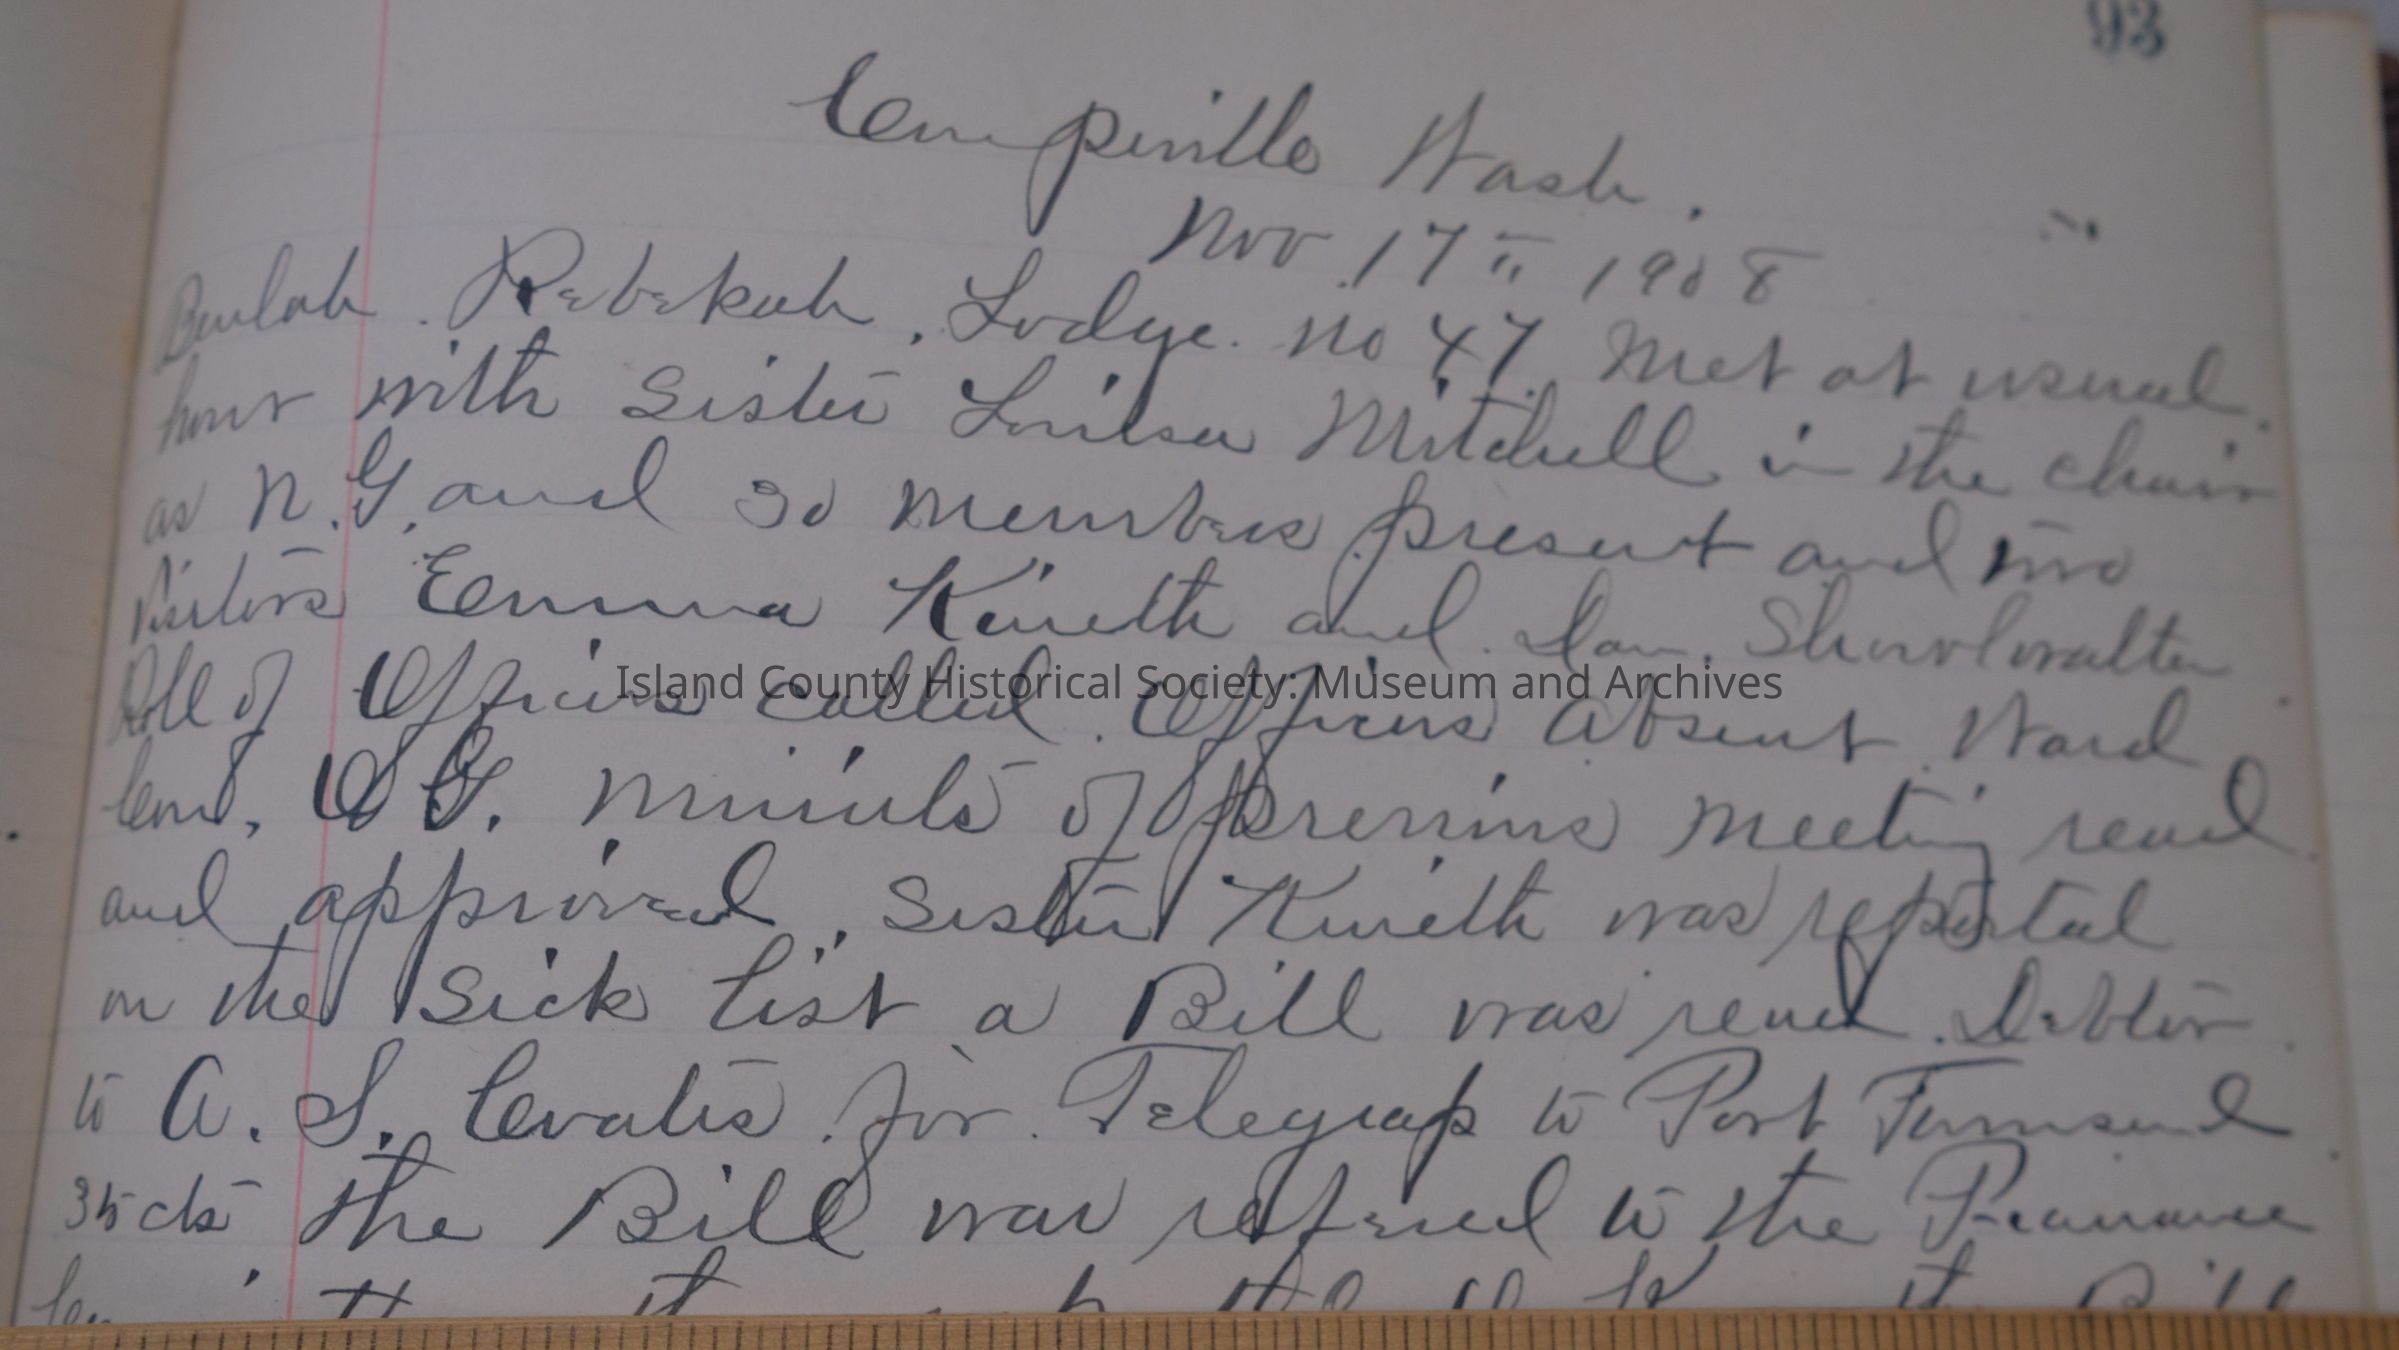 93
Coupeville Wash.
Nov. 17th 1908
Beulah. Rebekah. Lodge. no 47. Met at usual.
hour with Sister Louisa Mitchell in the chair
as N.G. and 30 members present and two
Visitors Emma Kineth and. Dan. Showlwalter
Roll of Officers called. Officers Absent Ward
Con, O G. Minuts of previous meeting read
and approved, Sister Kineth was reported
on the Sick list a Bill was read. Debtor
to A. S. Coates. for. Telegrap to Port Townsend
35 cts the Bill was refered to the Feanance
Island County Historical Society: Museum and Archives